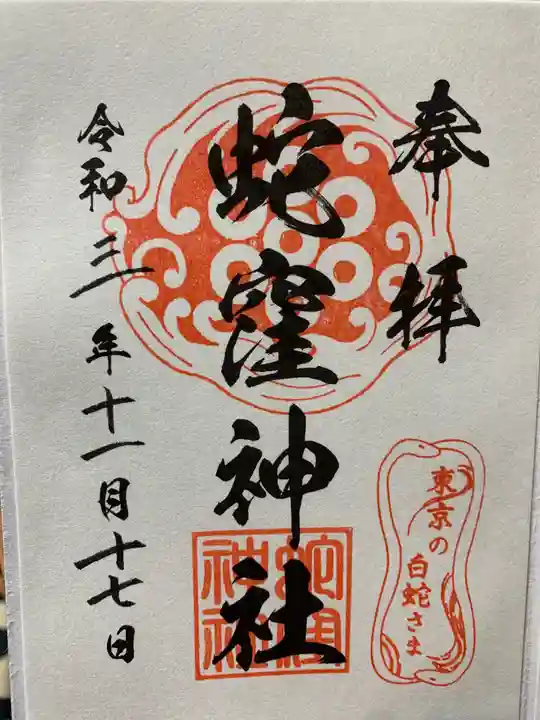 奉拝
東京の
白蛇さま
蛇窪神社
蛇窪
神社
令和三年十一月十七日